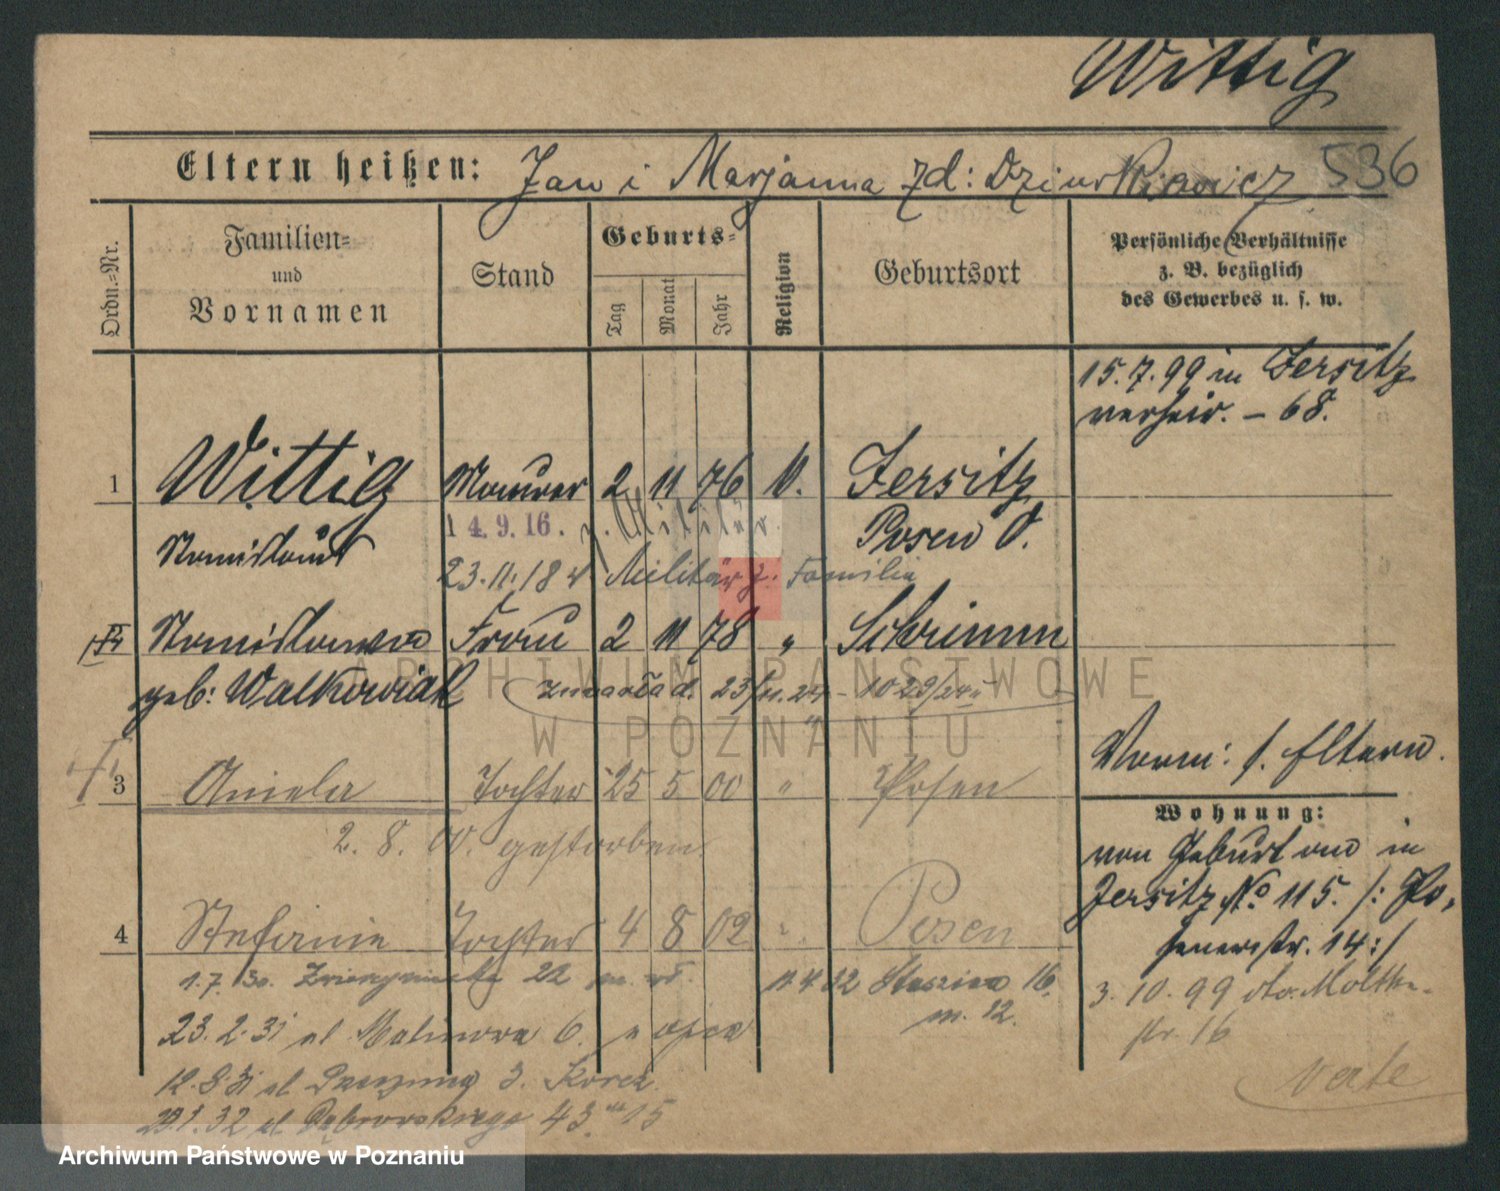 Wittig
Eltern heißen: Jan i Marjanna zd: Dziurkiewicz 536
Ordn.=Nr.
Familien=
und
Vornamen
Stand
Geburts=
Tag
Monat
Jahr
Religion
Geburtsort
Persönliche Verhältnisse
z. B. bezüglich
des Gewerbes u. s. w.
15.7.99 in Jersitz
verheir. – 68.
1 Wittig Maurer 2 11 76 k. Jersitz
14.9.16. z. Militär.
Stanislaus Posen O.
23.11.18 v. Militär z. Familie
Stanislawa Frau 2 11 78 " Schrimm
geb: Walkowiak
zmarła d. 23/11.24
Vorm: s. Eltern.
3 Aniela Tochter 25 5 00 " Posen
2. 8. 00. gestorben.
Wohnung:
von Geburt an in
Jersitz No 115. /: Po-
senerstr. 14 :/
4 Stefanie Tochter 4 8 02 " Posen
3. 10. 99 Moltke-
str. 16
1.7.30. Zwierzyniecka 22
11.4.32 Staszica 16.
m. 12.
23.2.31 ul Malinowa 6. u ojca
ul. 3. Korcz
32 ul Dąbrowskiego 43 m 15
verte
ARCHIWUM PAŃSTWOWE
W POZNANIU
Archiwum Państwowe w Poznaniu